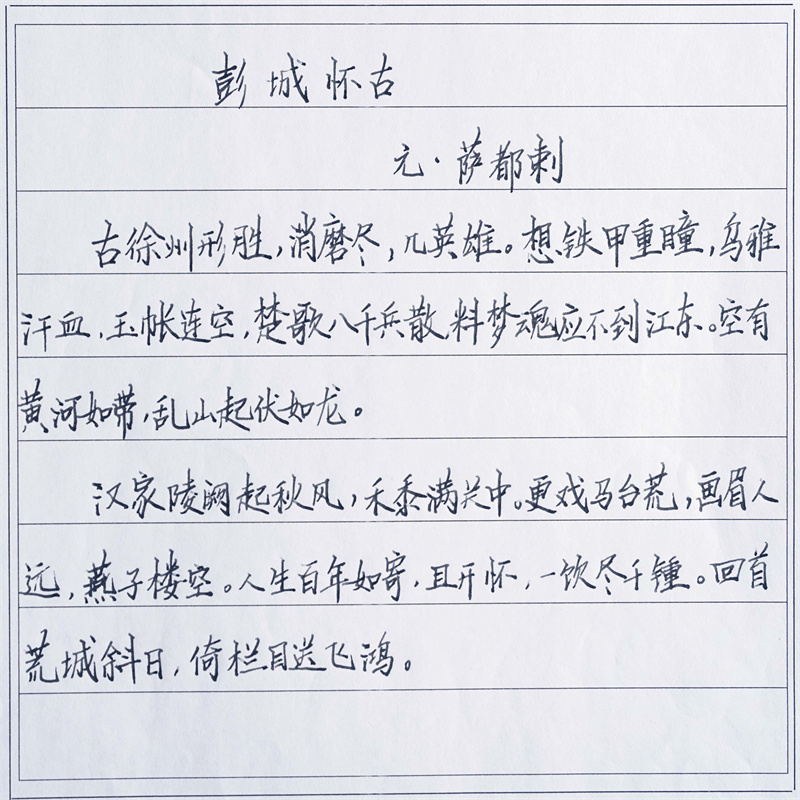 彭城怀古
元·萨都剌
古徐州形胜，消磨尽，几英雄。想铁甲重瞳，乌骓
汗血，玉帐连空，楚歌八千兵散，料梦魂应不到江东。空有
黄河如带，乱山起伏如龙。
汉家陵阙起秋风，禾黍满关中。更戏马台荒，画眉人
远，燕子楼空。人生百年如寄，且开怀，一饮尽千锺。回首
荒城斜日，倚栏目送飞鸿。